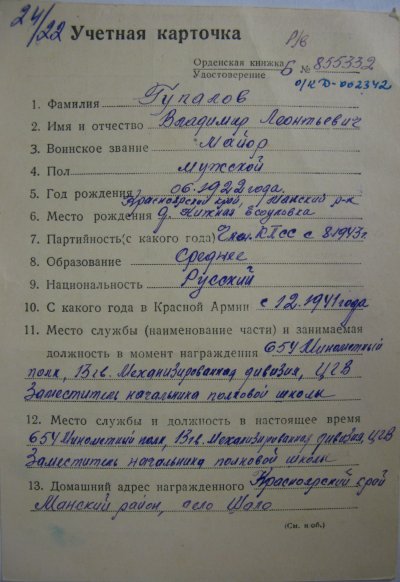 24/22 Учетная карточка
р/в
Орденская книжка
Удостоверение Б № 855332
о/к Д-002342
1. Фамилия Гупалов
2. Имя и отчество Владимир Леонтьевич
3. Воинское звание Майор
4. Пол мужской
5. Год рождения 06.1922 года.
Красноярский край, Манский р-н
6. Место рождения д. Нижняя Есауловка
7. Партийность (с какого года) Член КПСС с 8.1943г
8. Образование Среднее
9. Национальность Русский
10. С какого года в Красной Армии с 12.1941 года
11. Место службы (наименование части) и занимаемая
должность в момент награждения 654 Минометный
полк, 13 гв. Механизированная дивизия, ЦГВ
Заместитель начальника полковой школы
12. Место службы и должность в настоящее время
654 Минометный полк, 13 гв. Механизированная дивизия, ЦГВ
Заместитель начальника полковой школы
13. Домашний адрес награжденного Красноярский край
Манский район, село Шало
(См. н об.)